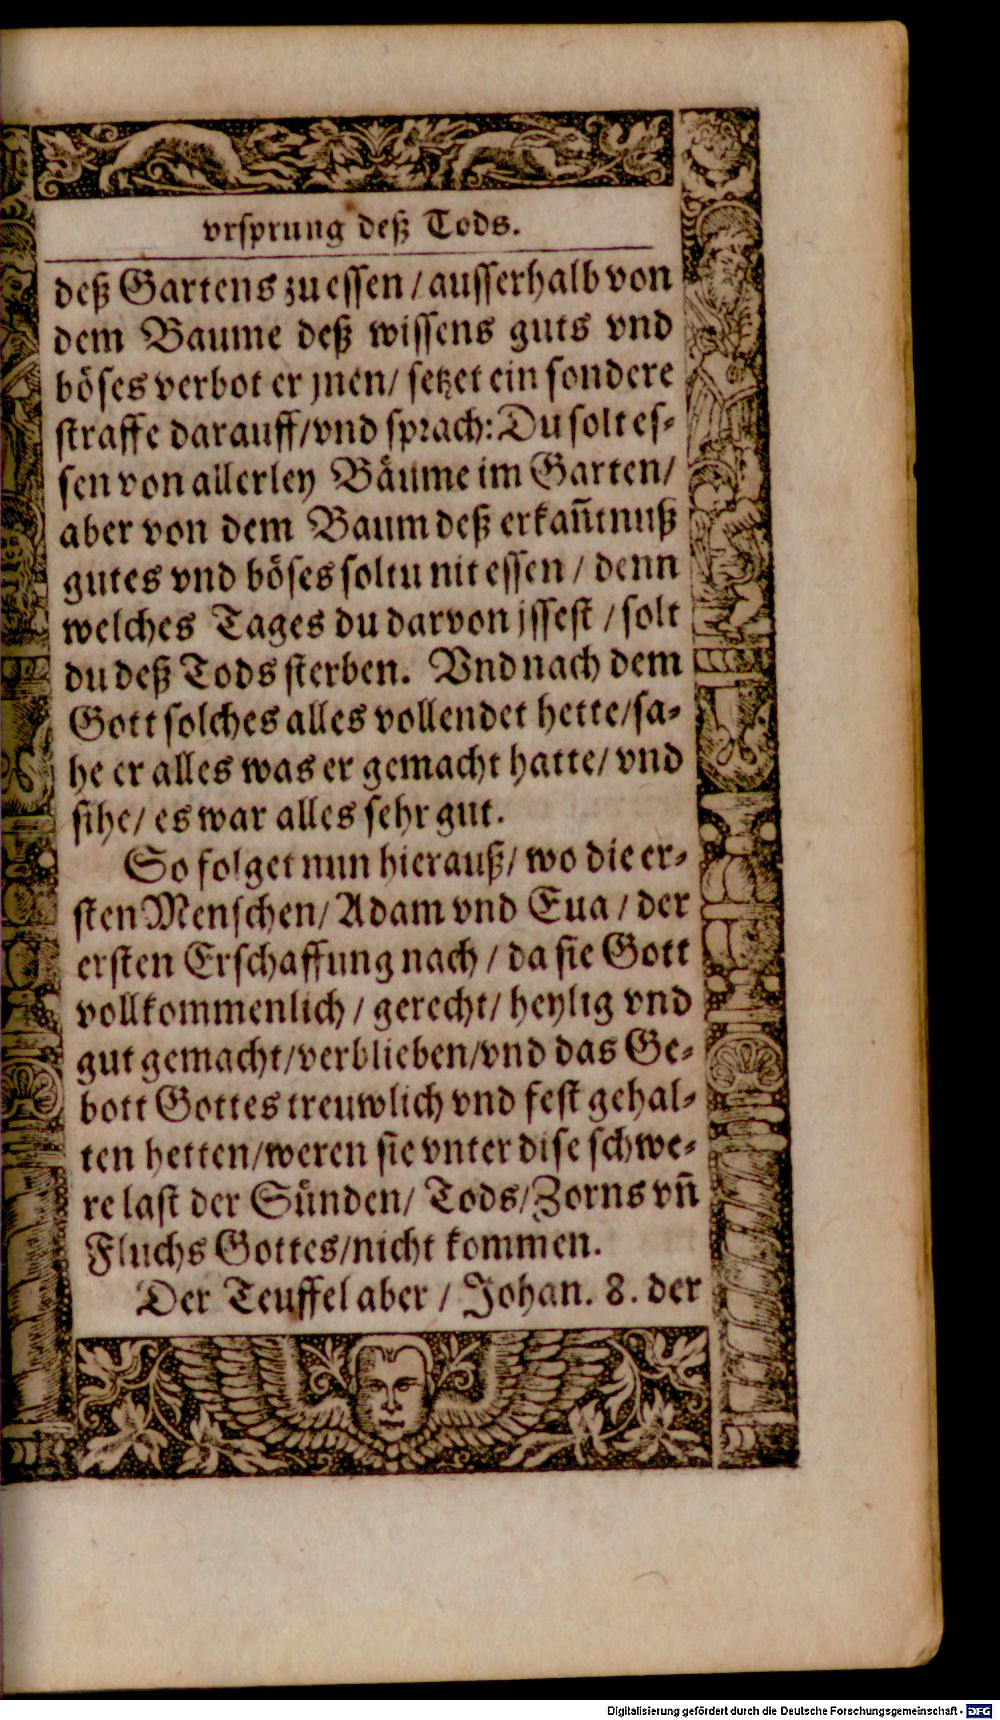 vrsprung deß Tods.
deß Gartens zu essen / ausserhalb von
dem Baume deß wissens guts vnd
böses verbot er jnen / setzet ein sondere
straffe darauff / vnd sprach: Du solt es⸗
sen von allerley Bäume im Garten /
aber von dem Baum deß erkañtnuß
gutes vnd böses soltu nit essen / denn
welches Tages du darvon jssest / solt
du deß Tods sterben. Vnd nach dem
Gott solches alles vollendet hette / sa⸗
he er alles was er gemacht hatte / vnd
sihe / es war alles sehr gut.
So folget nun hierauß / wo die er⸗
sten Menschen / Adam vnd Eua / der
ersten Erschaffung nach / da sie Gott
vollkommenlich / gerecht / heylig vnd
gut gemacht / verblieben / vnd das Ge⸗
bott Gottes treuwlich vnd fest gehal⸗
ten hetten / weren sie vnter dise schwe⸗
re last der Sünden / Tods / Zorns vñ
Fluchs Gottes / nicht kommen.
Der Teuffel aber / Johan. 8. der
Digitalisierung gefördert durch die Deutsche Forschungsgemeinschaft - DFG